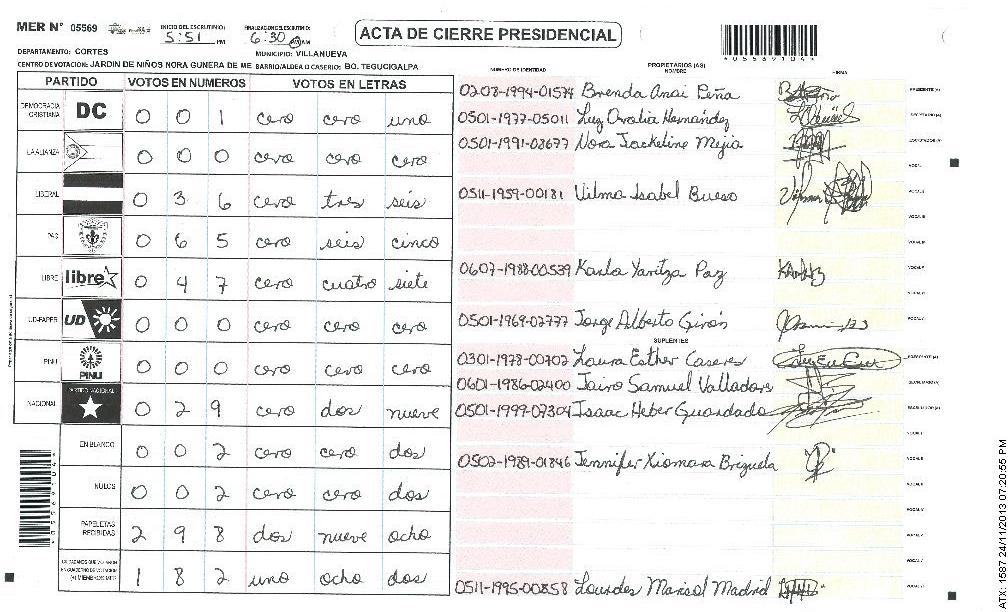 MER N° 05569
INICIO DEL ESCRUTINIO: 5:51 PM
FINALIZACION DEL ESCRUTINIO: 6:30 PM AM
ACTA DE CIERRE PRESIDENCIAL
*05569104*
DEPARTAMENTO: CORTES
MUNICIPIO: VILLANUEVA
CENTRO DE VOTACION: JARDIN DE NIÑOS NORA GUNERA DE ME BARRIO/ALDEA O CASERIO: BO. TEGUCIGALPA
PARTIDO VOTOS EN NUMEROS VOTOS EN LETRAS
DEMOCRACIA CRISTIANA DC 0 0 1 cero cero uno
LA ALIANZA 0 0 0 cero cero cero
LIBERAL 0 3 6 cero tres seis
PAC 0 6 5 cero seis cinco
LIBRE libre 0 4 7 cero cuatro siete
UD-FAPER UD 0 0 0 cero cero cero
PINU PINU 0 0 0 cero cero cero
NACIONAL PARTIDO NACIONAL 0 2 9 cero dos nueve
EN BLANCO 0 0 2 cero cero dos
NULOS 0 0 2 cero cero dos
PAPELETAS RECIBIDAS 2 9 8 dos nueve ocho
CIUDADANOS QUE VOTARON EN CUADERNO DE VOTACION (+) MIEMBROS MER 1 8 2 uno ocho dos
NUMERO DE IDENTIDAD PROPIETARIOS (AS) NOMBRE FIRMA
0208-1994-01574 Brenda Anai Peña PRESIDENTE (A)
0501-1977-05011 Luz Oralia Hernández SECRETARIO (A)
0501-1991-08677 Nora Jackeline Mejia ESCRUTADOR (A)
VOCAL I
0511-1959-00181 Vilma Isabel Bueso VOCAL II
VOCAL III
VOCAL IV
0607-1988-00539 Karla Yaritza Paz VOCAL V
0501-1969-02777 Jorge Alberto Girón VOCAL VI
SUPLENTES
0301-1978-00702 Laura Esther Caseres PRESIDENTE (A)
0601-1986-02400 Jairo Samuel Valladares SECRETARIO (A)
0501-1999-07304 Isaac Heber Guardado ESCRUTADOR (A)
VOCAL I
0502-1989-01846 Jennifer Xiomara Brizuela VOCAL II
VOCAL III
VOCAL IV
VOCAL V
0511-1995-00858 Lourdes Marisol Madrid VOCAL VI
*05569104*
ATX: 1587 24/11/2013 07:20:55 PM